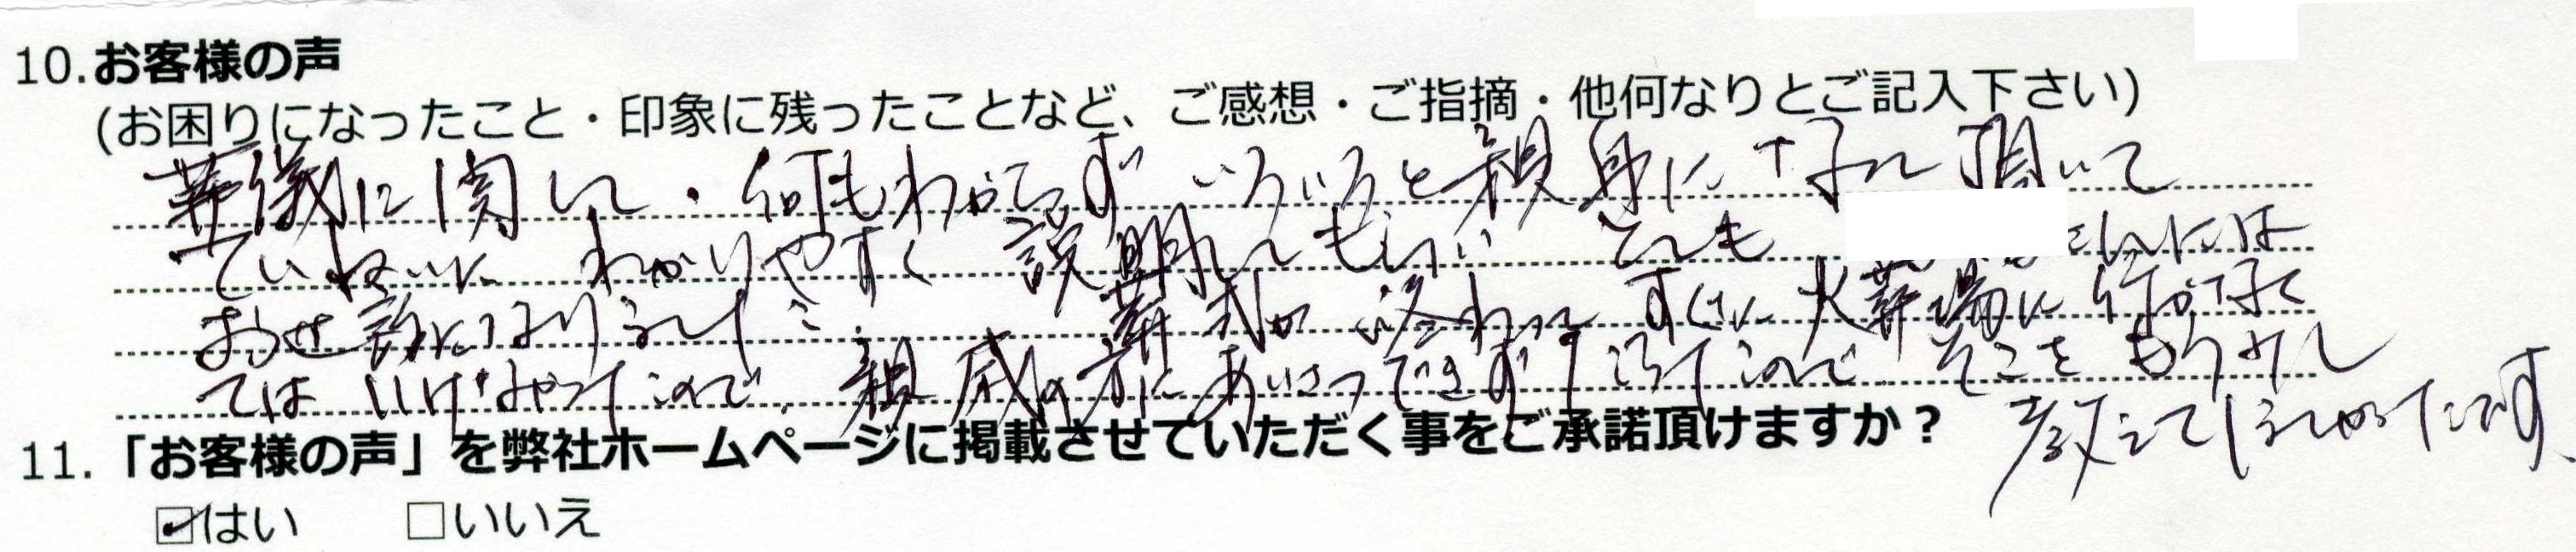 10.お客様の声
(お困りになったこと・印象に残ったことなど、ご感想・ご指摘・他何なりとご記入下さい)
葬儀に関して、何もわからず いろいろと親身に 頂いて
ていねいに わかりやすく 説明してもらい とても さんには
お世話になりました。葬式が終わって すぐに火葬場に行かなく
てはいけなかったので、親戚の方にあいさつできず じまいだったので そこをもう少し
教えてほしかったです、
11.「お客様の声」を弊社ホームページに掲載させていただく事をご承諾頂けますか？
☑はい □いいえ